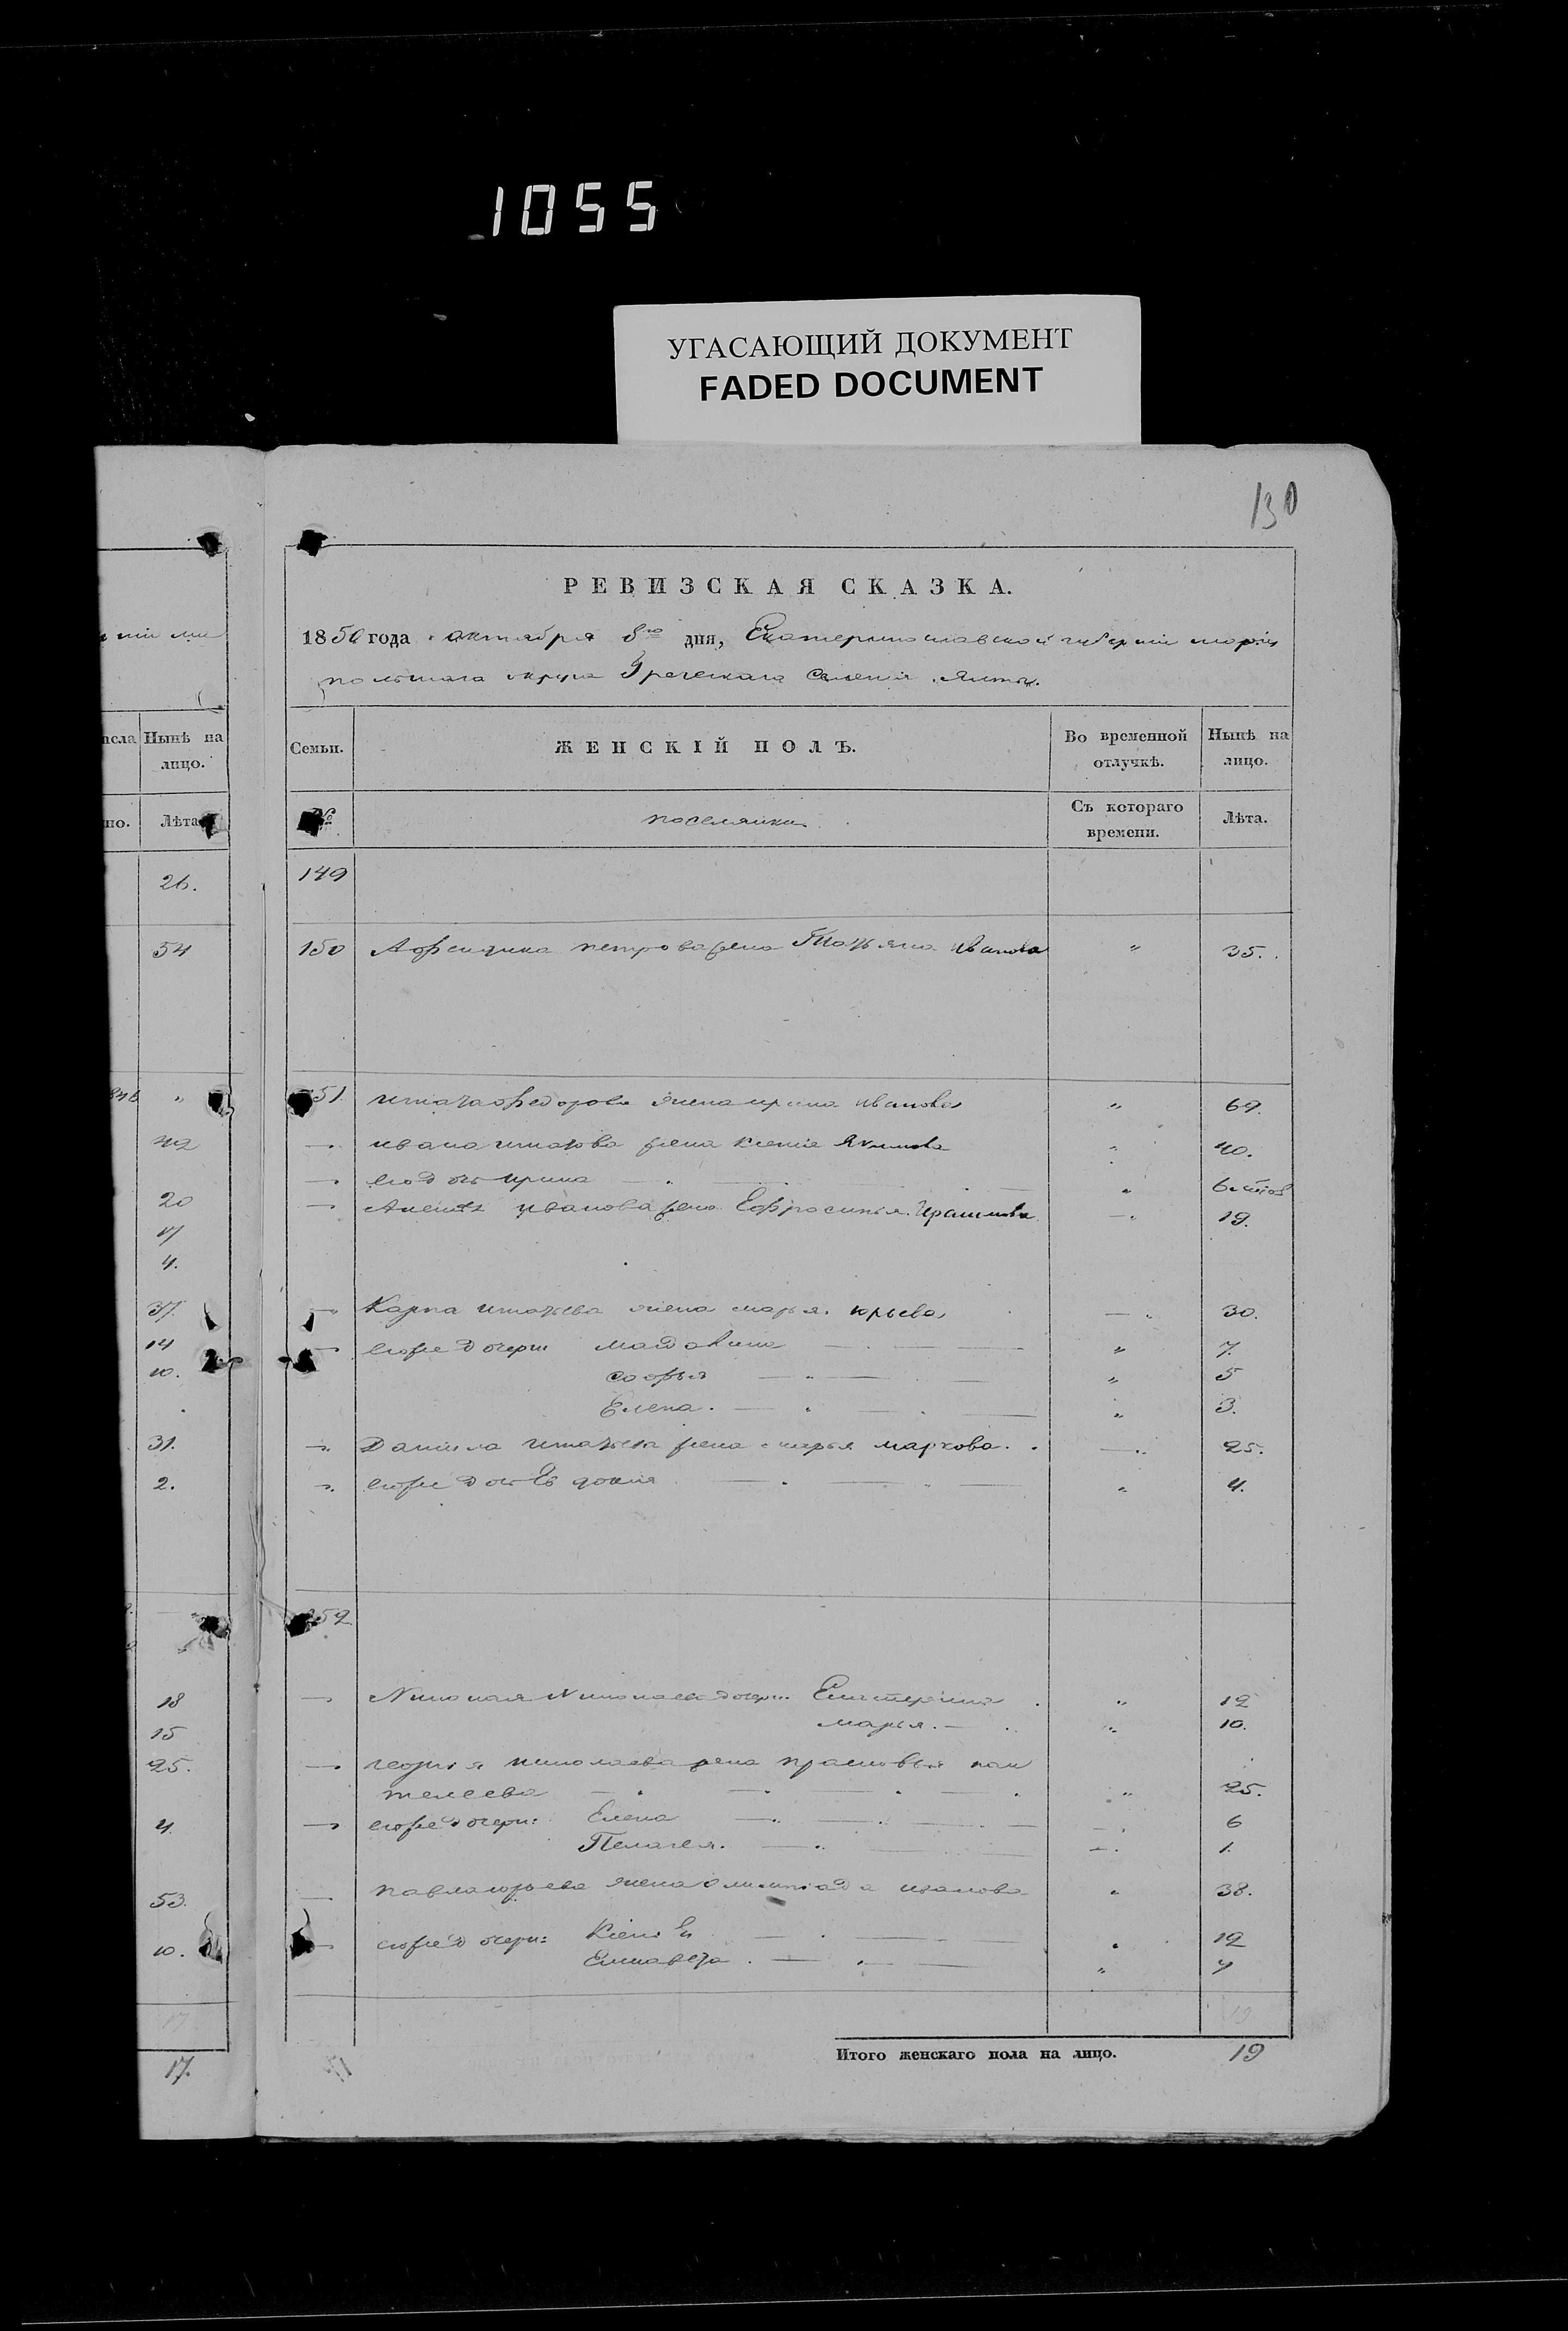 1055
УГАСАЮЩИЙ ДОКУМЕНТ
FADED DOCUMENT
130
РЕВИЗСКАЯ СКАЗКА.
1850 года октября 8го дня, Екатеринославской губерніи маріу
польскаго округа Греческаго Селенія Ялты.
Нынѣ на лицо.
Лѣта
26.
54
42
20
17
4.
37.
14
10.
31.
2.
18
15
25.
4.
53.
10.
17
17.
Семьи. ЖЕНСКІЙ ПОЛЪ. Во временной отлучкѣ. Нынѣ на лицо.
№ поселянки Съ котораго времени. Лѣта.
149
150 петрова жена Татьяна Иванова " 35.
151 игната федорова жена ирина иванова " 69.
ивана игнатова жена ксенія Якимова " 40.
его дочь ирина "
ивanова жена Ефросинья 19.
Карпа игнатьева жена марья юрьева 30.
его же дочери " 7.
софья " 5
Елена. " 3.
Даніила игнатьева жена марья маркова. 25.
его же дочь Евдокія " 4.
152
Николая Николаева дочери: Екатерина " 12
марья. " 10.
георгія николаева жена прасковья пан
телеева " 25.
его же дочери: Елена 6
Пелагея. 1.
павла юрьева жена олимпіада " 38.
его же дочери: 12
Елисавета 7
19
Итого женскаго пола на лицо. 19